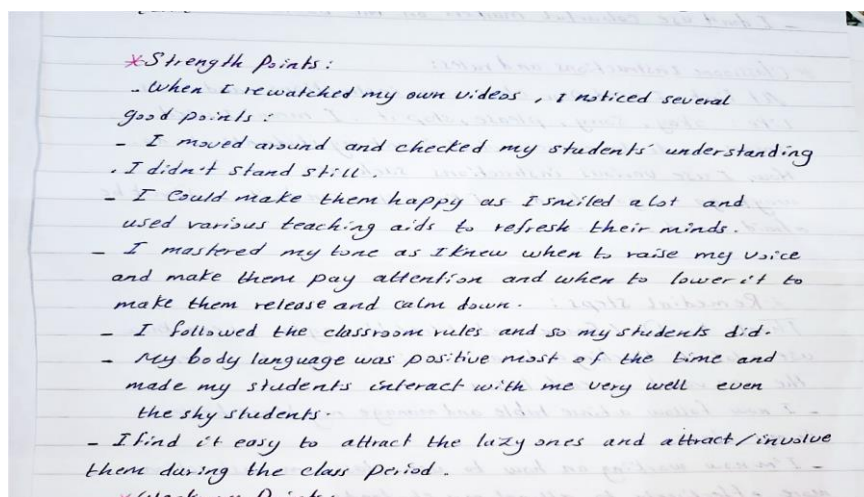 *Strength Points:
- When I rewatched my own videos, I noticed several
good points:
- I moved around and checked my students' understanding
. I didn't stand still.
- I could make them happy as I smiled alot and
used various teaching aids to refresh their minds.
- I mastered my tone as I knew when to raise my voice
and make them pay attention and when to lower it to
make them release and calm down.
- I followed the classroom rules and so my students did.
- My body language was positive most of the time and
made my students interact with me very well even
the shy students.
- I find it easy to attract the lazy ones and attract/involve
them during the class period.